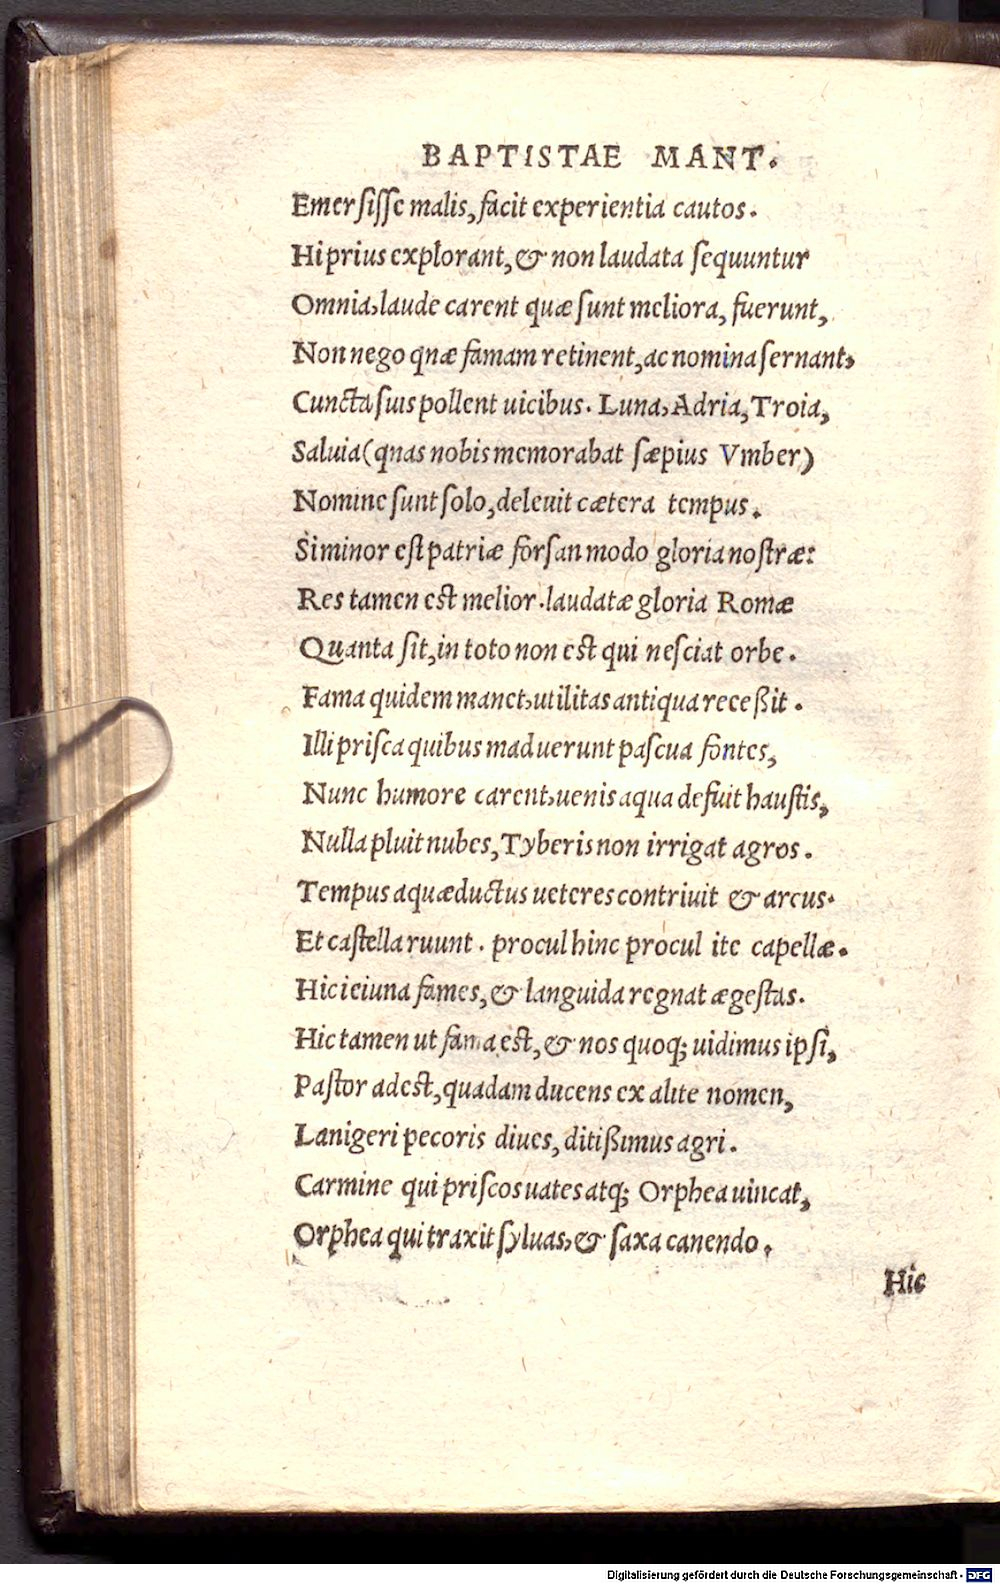 BAPTISTAE MANT.
Emersisse malis, facit experientia cautos.
Hi prius explorant, & non laudata sequuntur
Omnia, laude carent quæ sunt meliora, fuerunt,
Non nego qnæ famam retinent, ac nomina sernant,
Cuncta suis pollent uicibus. Luna, Adria, Troia,
Saluia (qnas nobis memorabat sæpius Vmber)
Nomine sunt solo, deleuit cætera tempus.
Si minor est patriæ forsan modo gloria nostræ:
Res tamen est melior. laudatæ gloria Romæ
Quanta sit, in toto non est qui nesciat orbe.
Fama quidem manet, utilitas antiqua receßit.
Illi prisca quibus maduerunt pascua fontes,
Nunc humore carent, uenis aqua defuit haustis,
Nulla pluit nubes, Tyberis non irrigat agros.
Tempus aquæductus ueteres contriuit & arcus.
Et castella ruunt. procul hinc procul ite capellæ.
Hic ieiuna fames, & languida regnat ægestas.
Hic tamen ut fama est, & nos quoq; uidimus ipsi,
Pastor adest, quadam ducens ex alite nomen,
Lanigeri pecoris diues, ditißimus agri.
Carmine qui priscos uates atq; Orphea uincat,
Orphea qui traxit syluas, & saxa canendo.
Hic
Digitalisierung gefördert durch die Deutsche Forschungsgemeinschaft - DFG